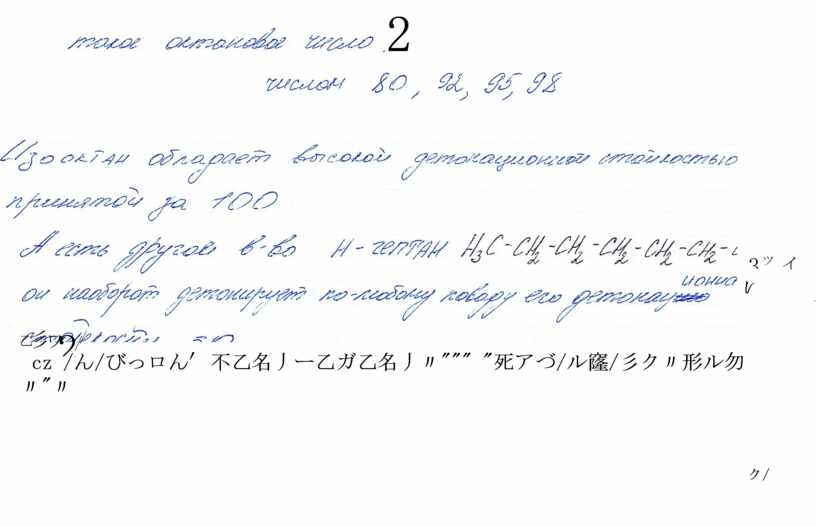 такое октановое число 2
числом 80, 92, 95, 98
Изооктан обладает высокой детонационной стойкостью
принятой за 100
А есть другое в-во Н-гептан H₃C-CH₂-CH₂-CH₂-CH₂-CH₂-
он наоборот детонирует по-любому поводу его детонац
ионная
cz /ん/びっロん' 不乙名丿ー乙ガ乙名丿〃""" "死アづ/ル窿/彡ク〃形ル勿
〃"〃
ク/